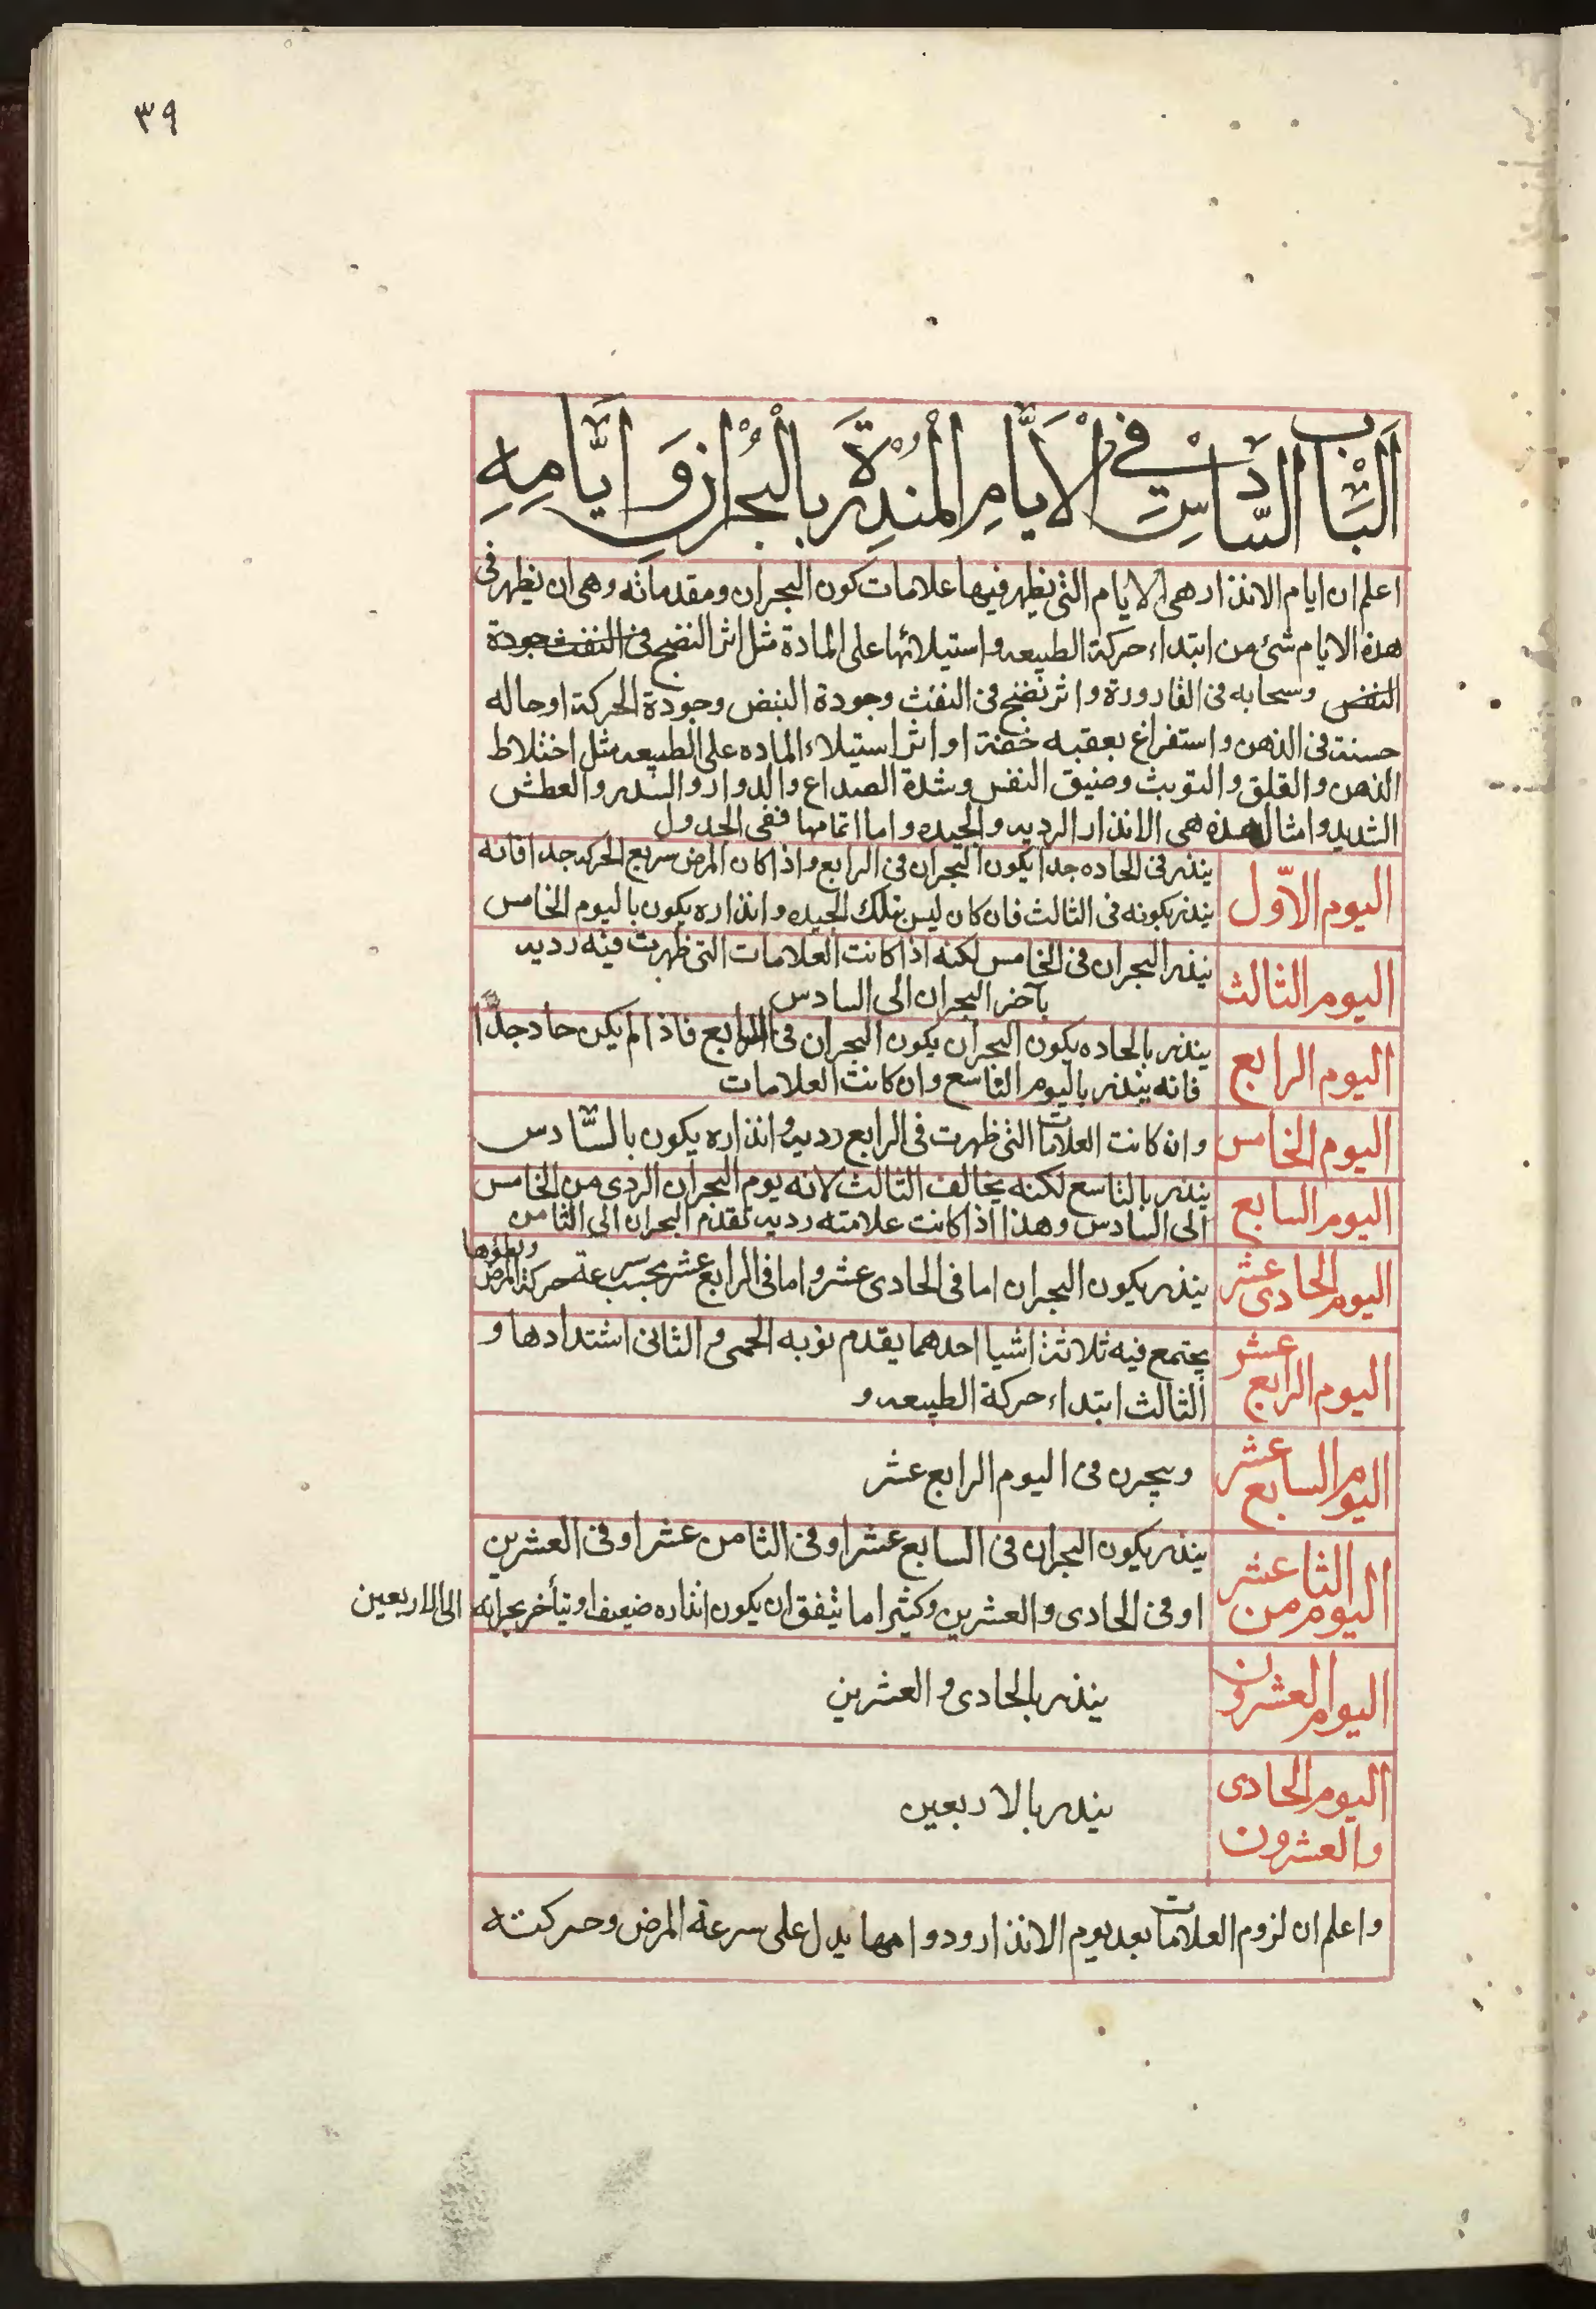 ٣٩
اَلْبَابُ السَّادِسُ فِي الْاَيَّامِ الْمُنذِرَةِ بِالْبُحْرَانِ وَاَيَّامِهِ
اعلم ان ايام الانذار هى الايام التى يظهر فيها علامات كون البحران ومقدماته وهى ان يظهر فى
هذه الايام شئ من ابتداء حركة الطبيعه واستيلائها على المادة مثل اثر النضج فى النفث وجودة
النفض وسحابه فى القارورة واثر نضج فى النفث وجودة النبض وجودة الحركة او حاله
حسنة فى الذهن واستفراغ يعقبه خفة او اثر استيلاء الماده على الطبيعه مثل اختلاط
الذهن والقلق والتوبث وضيق النفس وشدة الصداع والدوار والسدر والعطش
الشديد وامثال هذه هى الانذار الرديه والجيده واما اتمامها ففى الجدول
اليوم الاّول
ينذر فى الحاده جدا يكون البحران فى الرابع واذا كان المرض سريع الحركه جدا فانه
ينذر بكونه فى الثالث فان كان ليس بتلك الجيده وانذاره يكون باليوم الخامس
اليوم الثالث
ينذر البحران فى الخامس لكنه اذا كانت العلامات التى ظهرت فيه رديه
بآخر البحران الى السادس
اليوم الرابع
ينذر بالحاده يكون البحران يكون البحران فى السابع فاذا لم يكن حاد جدًّا
فانه ينذر باليوم التاسع وان كانت العلامات
اليوم الخامس
وان كانت العلامات التى ظهرت فى الرابع رديه وانذاره يكون بالسَّادس
اليوم السابع
ينذر بالتاسع لكنه يخالف الثالث لانه يوم البحران الردى من الخامس
الى السادس وهذا اذا كانت علامته رديه تقدم البحران الى الثامن
اليوم الحادى عشر
ينذر بكون البحران اما فى الحادى عشر واما فى الرابع عشر بحسب سرعة حركة المرض
وبطؤها
اليوم الرابع عشر
يجتمع فيه ثلاثة اشيا احدهما يقدم نوبه الحمى و الثانى اشتدادها و
الثالث ابتداء حركة الطبيعه و
اليوم السابع عشر
ويبحرن فى اليوم الرابع عشر
اليوم الثامن عشر
ينذر بكون البحران فى السابع عشر او فى الثامن عشر او فى العشرين
او فى الحادى والعشرين وكثيرا ما يتفق ان يكون انذاره ضعيفا ويتأخر بحرانه الى الاربعين
اليوم العشرون
ينذر بالحادى و العشرين
اليوم الحادى
والعشرون
ينذر بالاربعين
واعلم ان لزوم العلامات بعد يوم الانذار ودوامها يدل على سرعة المرض وحركته